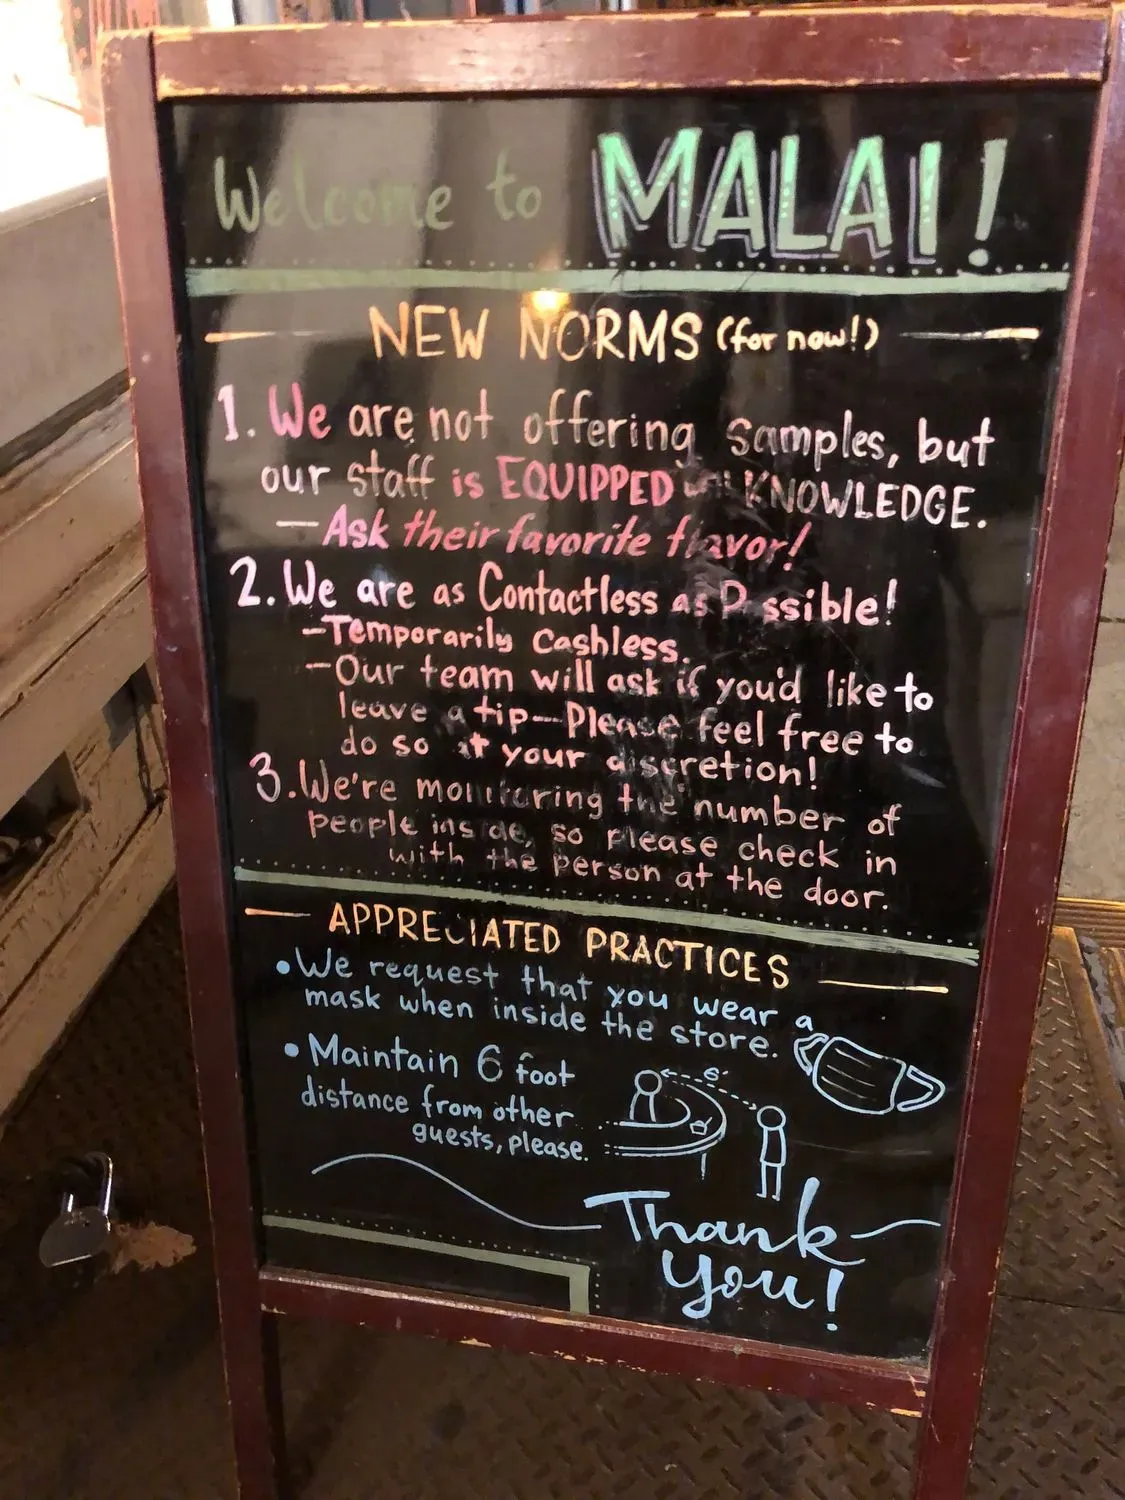 Welcome to MALAI!
NEW NORMS (for now!)
1. We are not offering samples, but
our staff is EQUIPPED with KNOWLEDGE.
— Ask their favorite flavor!
2. We are as Contactless as Possible!
- Temporarily Cashless.
- Our team will ask if you'd like to
leave a tip — Please feel free to
do so at your discretion!
3. We're monitoring the number of
people inside, so please check in
with the person at the door.
APPRECIATED PRACTICES
• We request that you wear a
mask when inside the store.
• Maintain 6 foot
distance from other
guests, please.
6'
Thank
you!